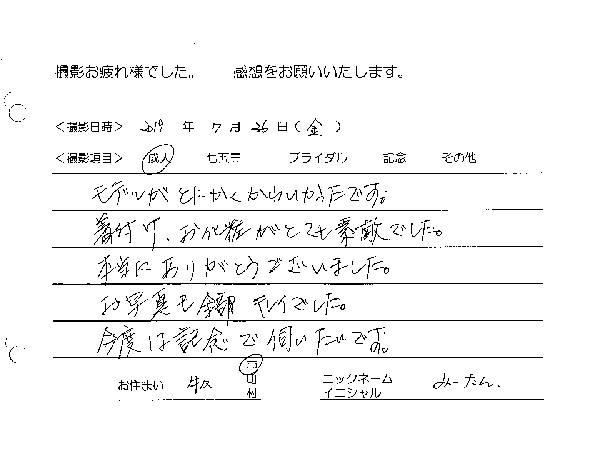 撮影お疲れ様でした。 感想をお願いいたします。
<撮影日時> 2019 年 7 月 26 日 (金)
<撮影項目> 成人 七五三 ブライダル 記念 その他
モデルがとにかくかわいかったです。
着付け、お化粧がとても素敵でした。
本当にありがとうございました。
お写真も全部キレイでした。
今度は記念で伺いたいです。
お住まい 牛久 市 町 村 ニックネーム イニシャル みーたん.